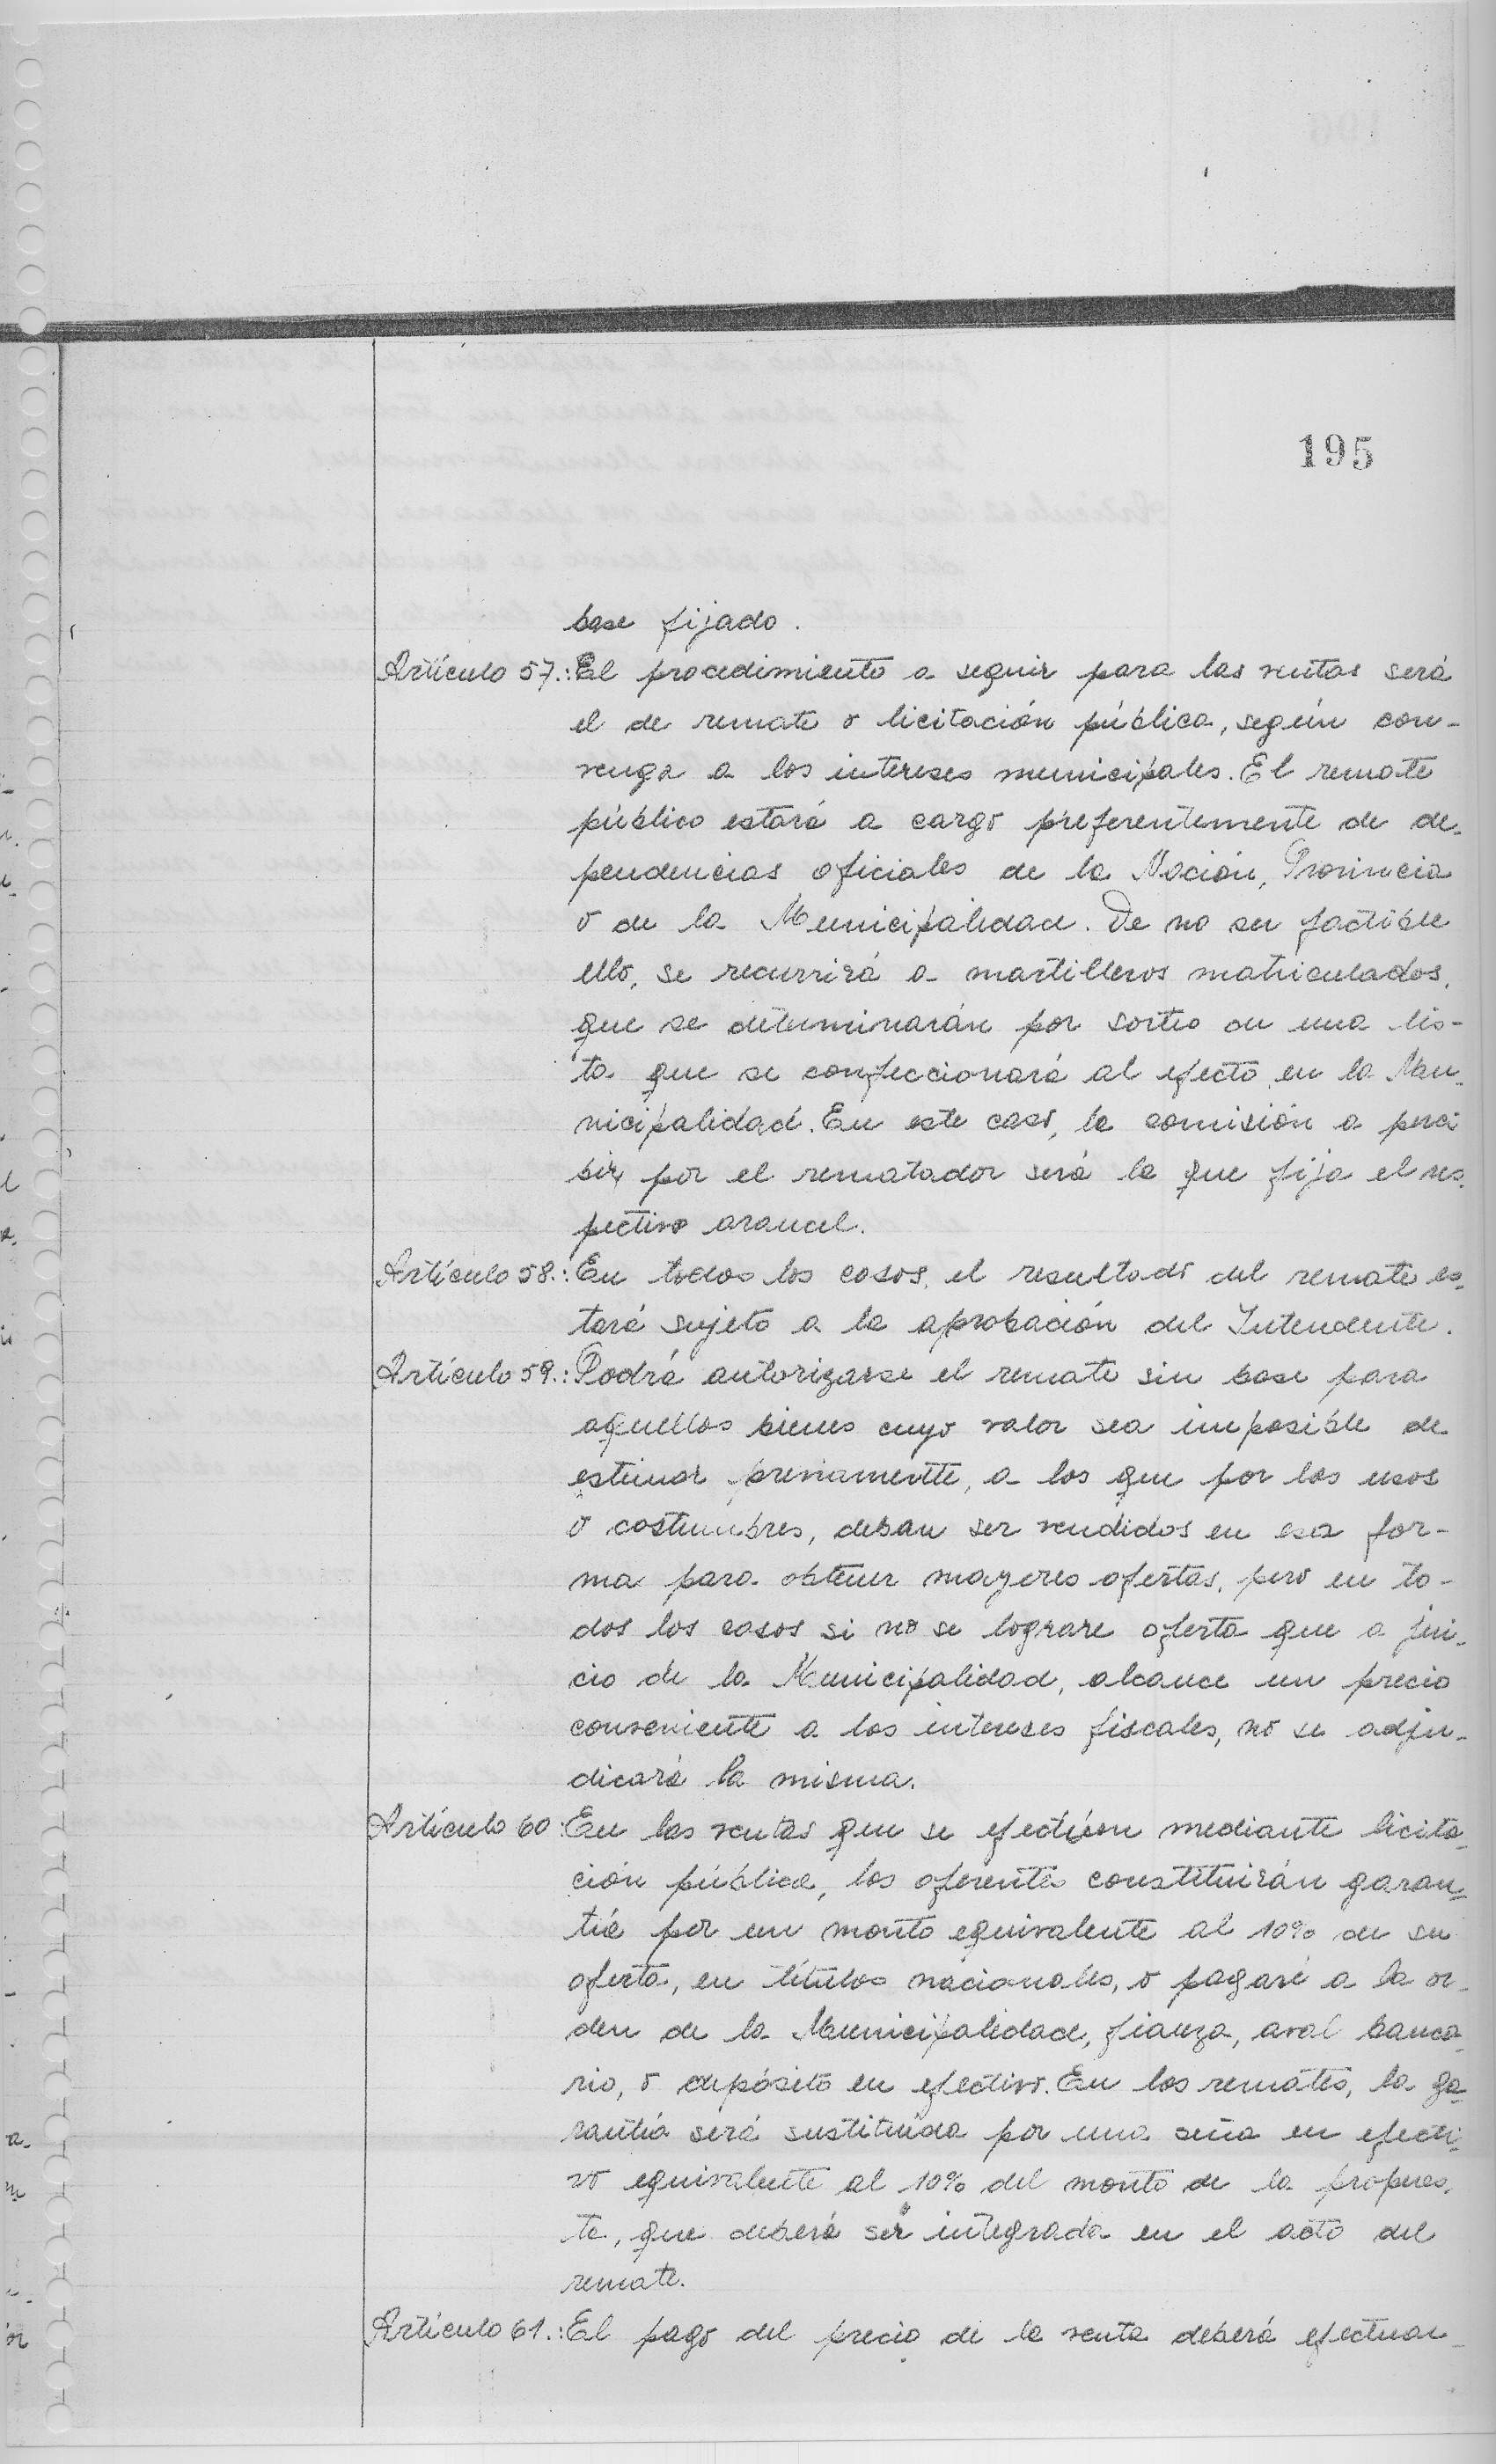 195
base fijado.
Artículo 57.: El procedimiento a seguir para las ventas será
el de remate o licitación pública, según con-
venga a los intereses municipales. El remate
público estará a cargo preferentemente de de-
pendencias oficiales de la Nación, Provincia
o de la Municipalidad. De no ser factible
ello, se recurrirá a martilleros matriculados,
que se determinarán por sorteo de una lis-
ta que se confeccionará al efecto en la Mu-
nicipalidad. En este caso, la comisión a perci
bir por el rematador será la que fija el res-
pectivo arancel.
Artículo 58.: En todos los casos, el resultado del remate es-
tará sujeto a la aprobación del Intendente.
Artículo 59.: Podrá autorizarse el remate sin base para
aquellos bienes cuyo valor sea imposible de
estimar previamentte, a los que por los usos
o costumbres, deban ser vendidos en esa for-
ma para obtener mayores ofertas, pero en to-
dos los casos si no se lograre oferta que a jui-
cio de la Municipalidad, alcance un precio
conveniente a los intereses fiscales, no se adju-
dicará la misma.
Artículo 60: En las ventas que se efectúen mediante licita-
ción pública, los oferentes constituirán garan-
tía por un monto equivalente al 10% de su
oferta, en títulos nacionales, o pagaré a la or-
den de la Municipalidad, fianza, aval banca-
rio, o depósito en efectivo. En los remates, la ga-
rantía será sustituída por una seña en efecti-
vo equivalente al 10% del monto de la propues-
ta, que deberá ser integrada en el acto del
remate.
Artículo 61.: El pago del precio de la venta deberá efectuar-